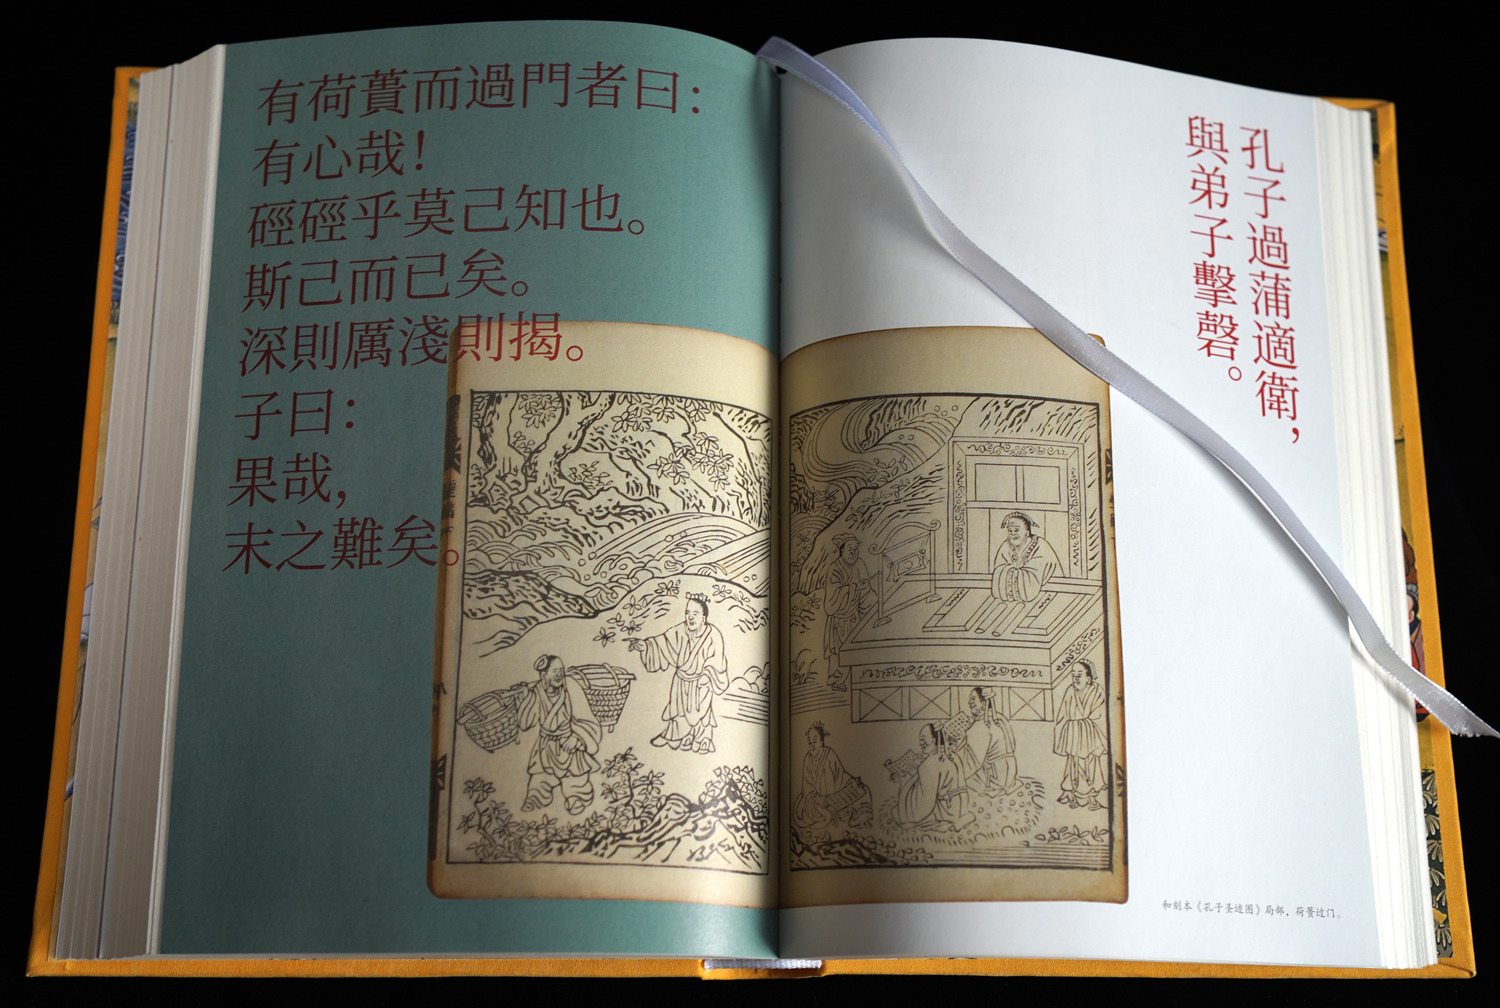 孔子過蒲適衛，
與弟子擊磬。
有荷蕢而過門者曰：
有心哉！
硜硜乎莫己知也。
斯己而已矣。
深則厲淺則揭。
子曰：
果哉，
末之難矣。
和刻本《孔子圣迹图》局部，荷蒉过门。